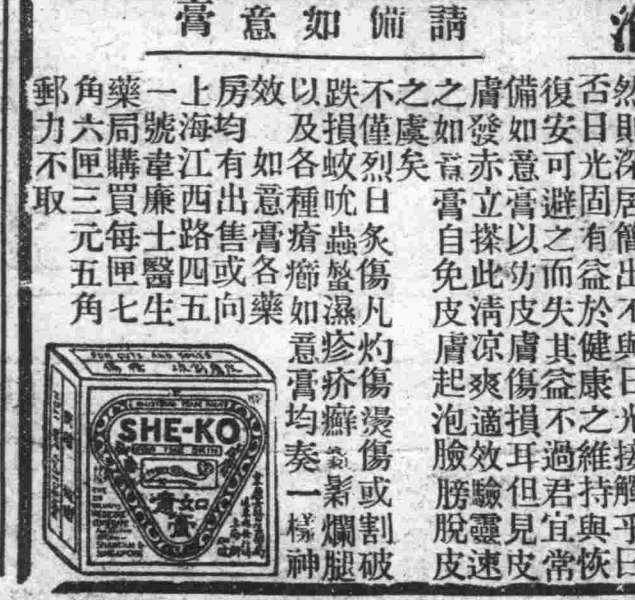 請備如意膏
然則深居簡出不與日光接觸乎日
否日光固有益於健康之維持與恢
復安可避之而失其益不過君宜常
備如意膏以防皮膚傷損耳但見皮
膚發赤立搽此清凉爽適效驗靈速
之如意膏自免皮膚起泡臉膀脫皮
之虞矣
不僅烈日炙傷凡灼傷燙傷或割破
跌損蚊吮蟲螫濕疹疥癬爛腿
以及各種瘡癤如意膏均奏一樣神
效 如意膏各藥
房均有出售或向
上海江西路四五
一號韋廉士醫生
藥局購買每匣七
角六匣三元五角
郵力不取
FOR CUTS AND SORES
SHE-KO
FOR THE SKIN
如意膏